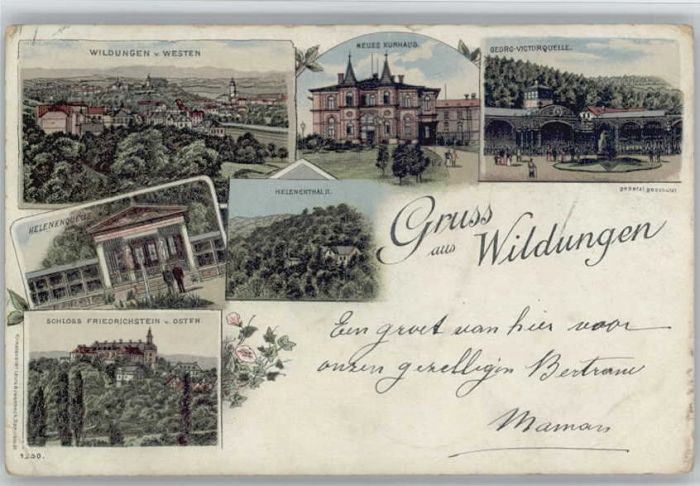 WILDUNGEN v. WESTEN
NEUES KURHAUS.
GEORG-VICTORQUELLE.
HELENENQUELLE
HELENENTHAL II.
general geschützt
Gruss
aus Wildungen
SCHLOSS FRIEDRICHSTEIN v. OSTEN.
Een groet van hier voor
onzen gezelligen Bertram
Maman
1250.